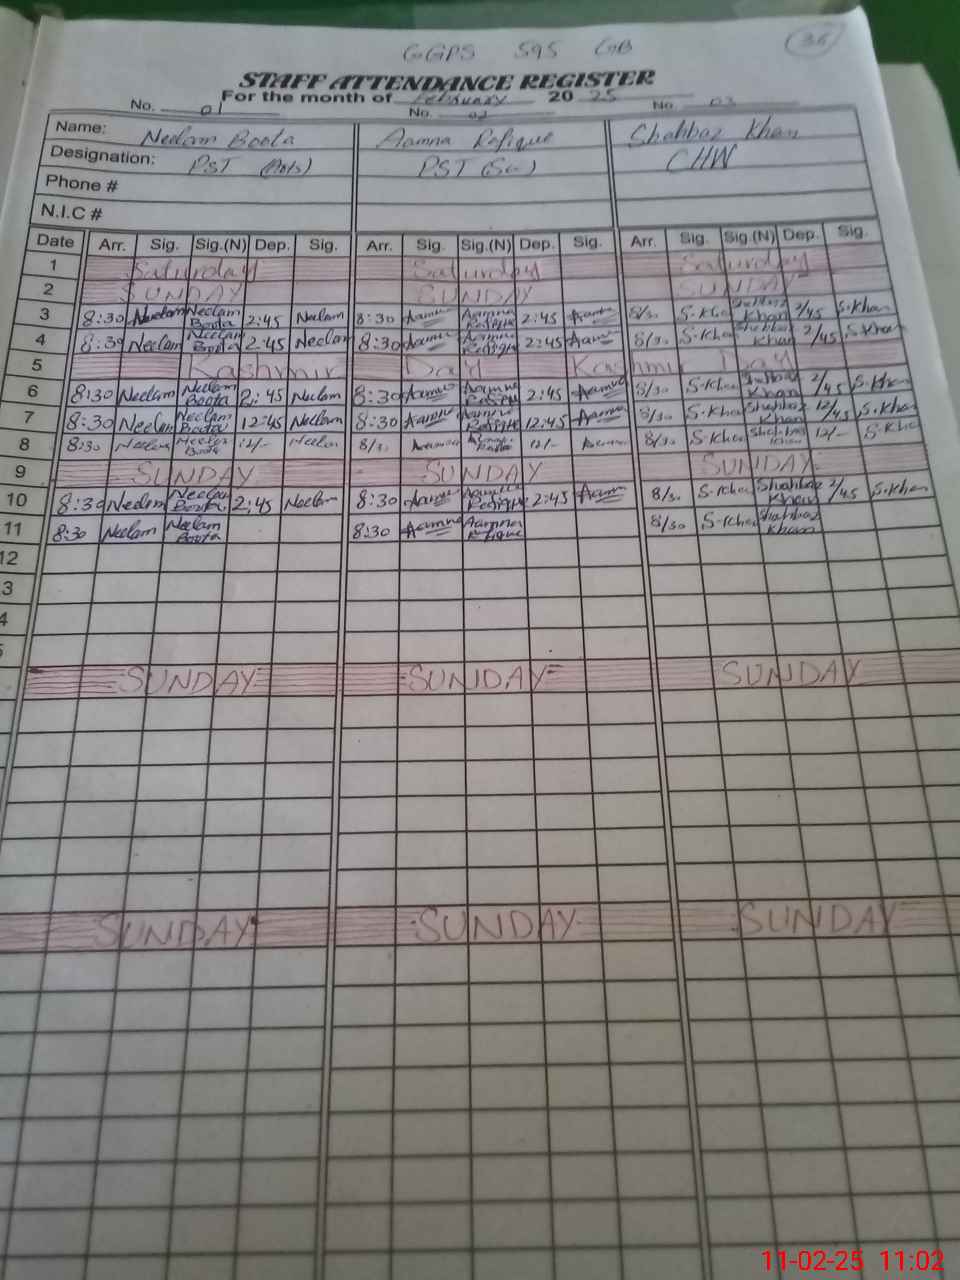 36
GGPS 595 GB
STAFF ATTENDANCE REGISTER
For the month of February 2025
No. 01 No. 02 No. 03
Name: Neelam Boota Aamna Rafique Shahbaz Khan
Designation: PST (Arts) PST (Sc) CHW
Phone #
N.I.C #
Date Arr. Sig. Sig.(N) Dep. Sig. Arr. Sig. Sig.(N) Dep. Sig. Arr. Sig. Sig.(N) Dep. Sig.
1 Saturday Saturday Saturday
2 SUNDAY SUNDAY SUNDAY
3 8:30 Neelam Neelam Boota 2:45 Neelam 8:30 Aamna Aamna Rafique 2:45 Aamna 8/30 S-Khan Shahbaz Khan 2/45 S-Khan
4 8:30 Neelam Neelam Boota 2:45 Neelam 8:30 Aamna Aamna Rafique 2:45 Aamna 8/30 S-Khan Shahbaz Khan 2/45 S-Khan
5 Kashmir Day Kashmir Day
6 8:30 Neelam Neelam Boota 2:45 Neelam 8:30 Aamna Aamna Rafique 2:45 Aamna 8/30 S-Khan Shahbaz Khan 2/45 S-Khan
7 8:30 Neelam Neelam Boota 12:45 Neelam 8:30 Aamna Aamna Rafique 12:45 Aamna 8/30 S-Khan Shahbaz Khan 12/45 S-Khan
8 8:30 Neelam Neelam Boota 12/- Neelam 8/30 Aamna Aamna Rafique 12/- Aamna 8/30 S-Khan Shahbaz Khan 12/- S-Khan
9 SUNDAY SUNDAY SUNDAY
10 8:30 Neelam Neelam Boota 2:45 Neelam 8:30 Aamna Aamna Rafique 2:45 Aamna 8/30 S-Khan Shahbaz Khan 2/45 S-Khan
11 8:30 Neelam Neelam Boota 8:30 Aamna Aamna Rafique 8/30 S-Khan Shahbaz Khan
12
3
4
5
SUNDAY SUNDAY SUNDAY
SUNDAY SUNDAY SUNDAY
11-02-25 11:02